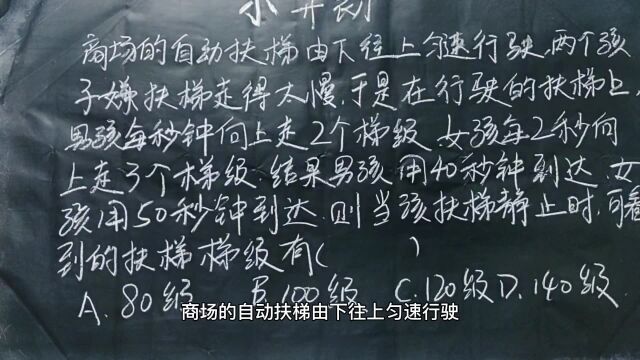 商场的自动扶梯由下往上匀速行驶,两个孩
子嫌扶梯走得太慢,于是在行驶的扶梯上,
男孩每秒钟向上走2个梯级,女孩每2秒向
上走3个梯级.结果男孩用40秒钟到达,女
孩用50秒钟到达.则当该扶梯静止时,可看
到的扶梯梯级有( )
A.80级 B.100级 C.120级 D.140级
商场的自动扶梯由下往上匀速行驶